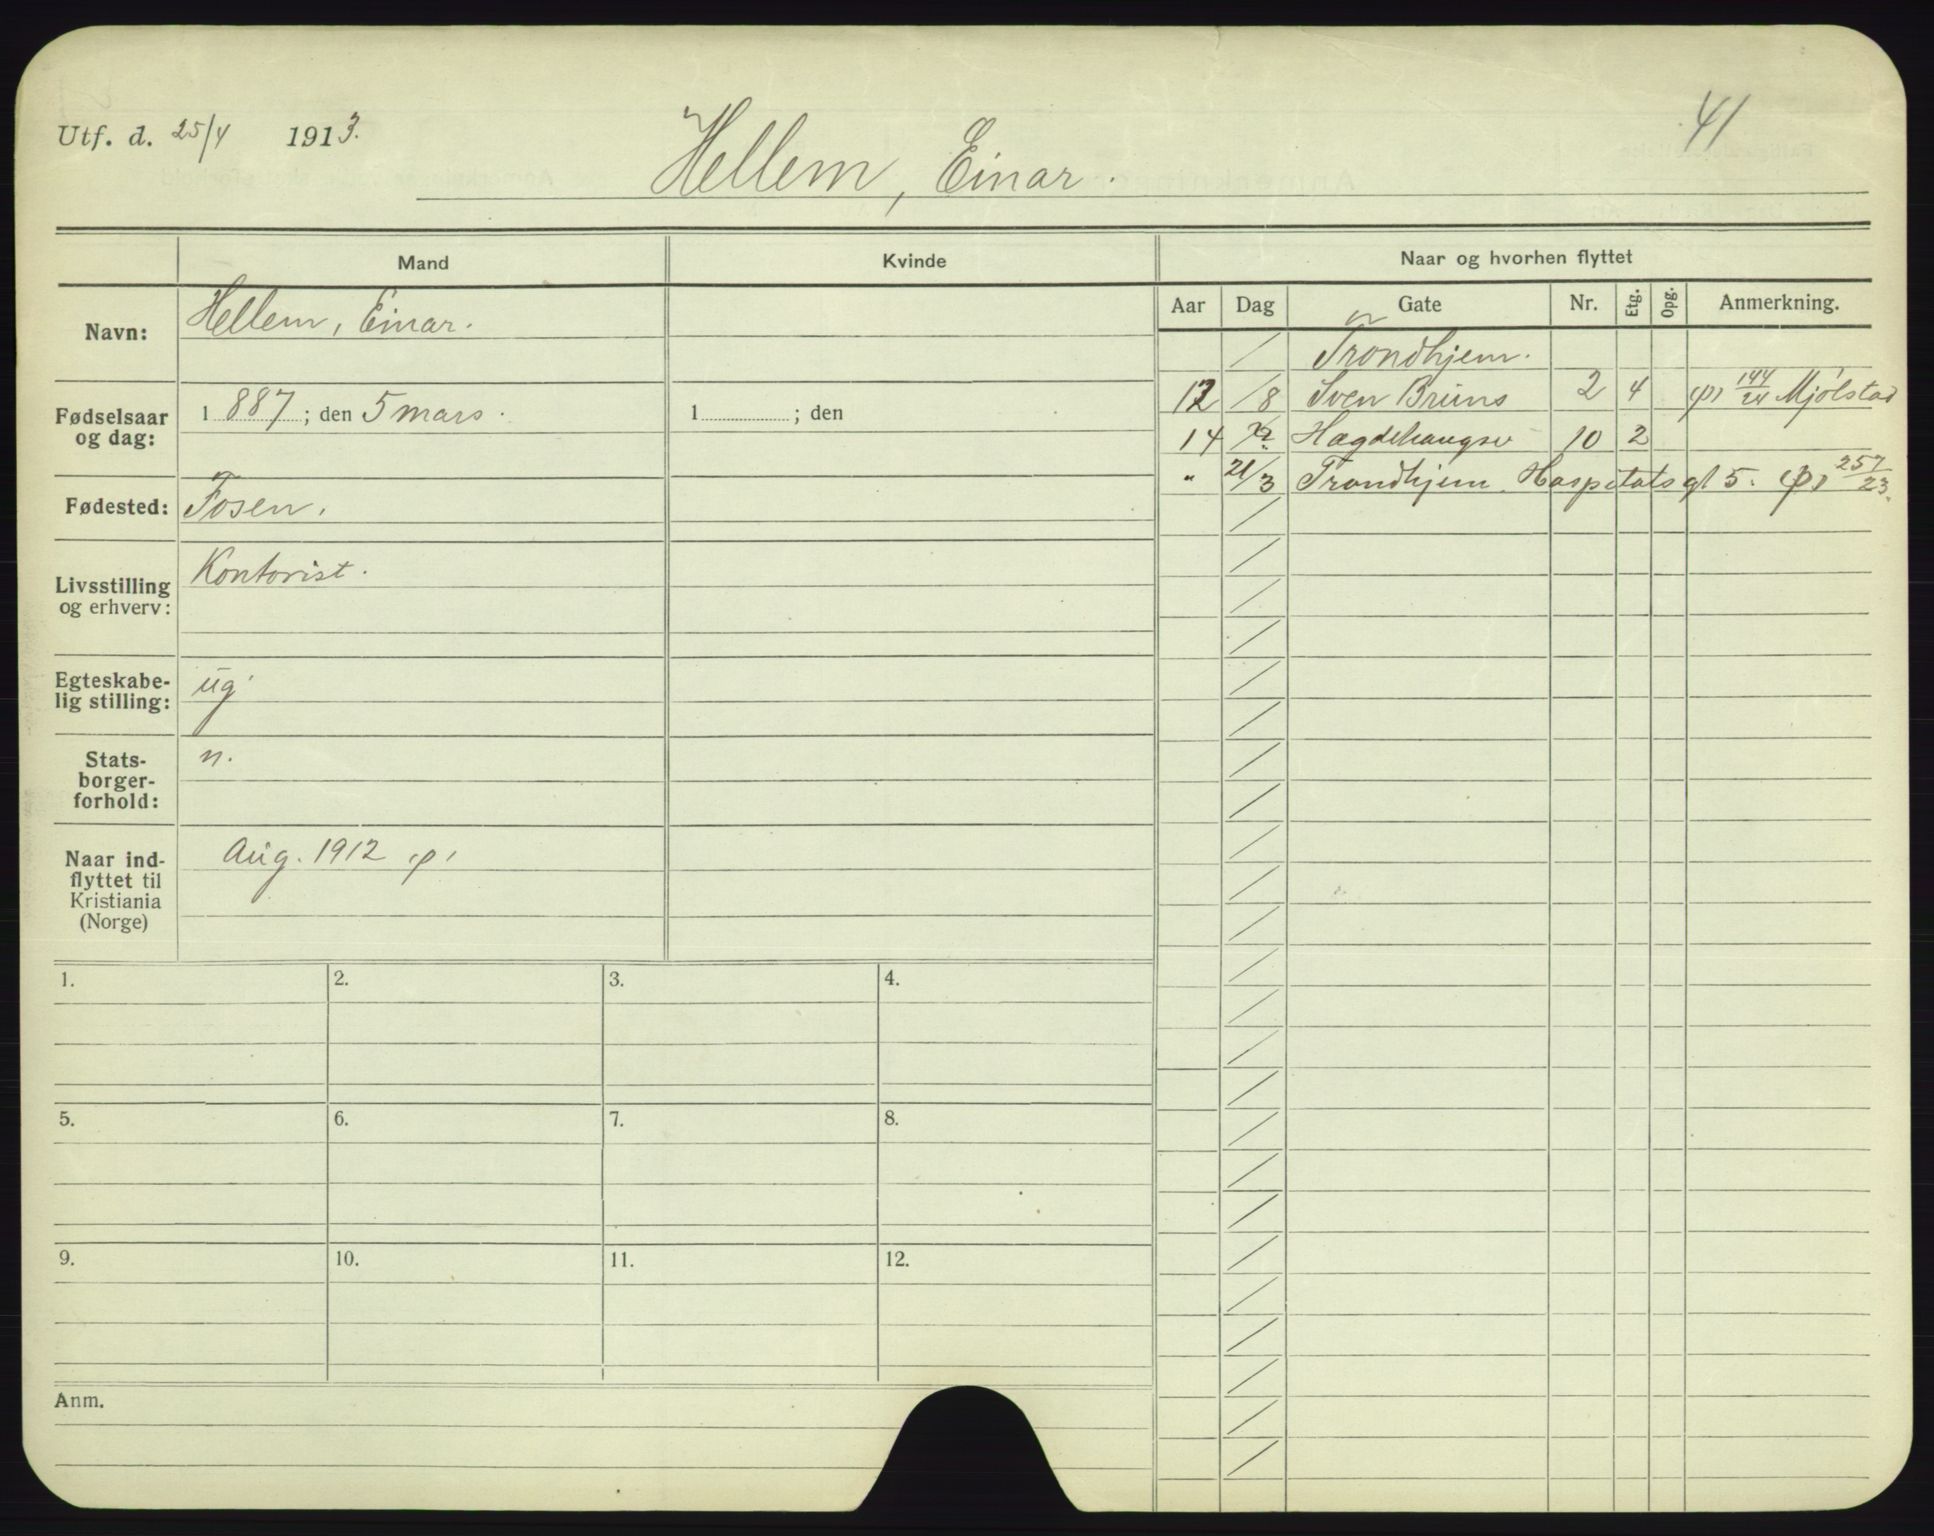 Utf. d. 25/4 1913.
41
Hellem, Einar.
Mand
Kvinde
Naar og hvorhen flyttet
Aar
Dag
Gate
Nr.
Etg.
Opg.
Anmerkning.
Navn:
Hellem, Einar.
Fødselsaar
og dag:
1 887 ; den 5 mars.
1 ; den
Fødested:
Fosen.
Livsstilling
og erhverv:
Kontorist.
Egteskabe-
lig stilling:
ug
Stats-
borger-
forhold:
n.
Naar ind-
flyttet til
Kristiania
(Norge)
Aug. 1912 φ
Trondhjem.
12 /8 Sven Bruns 2 4 φ 144/24 Mjölstad
14 Hægdehaugsv 10 2
" 21/3 Trondhjem. Hospitalsgt 5. φ 257/23.
1.
2.
3.
4.
5.
6.
7.
8.
9.
10.
11.
12.
Anm.